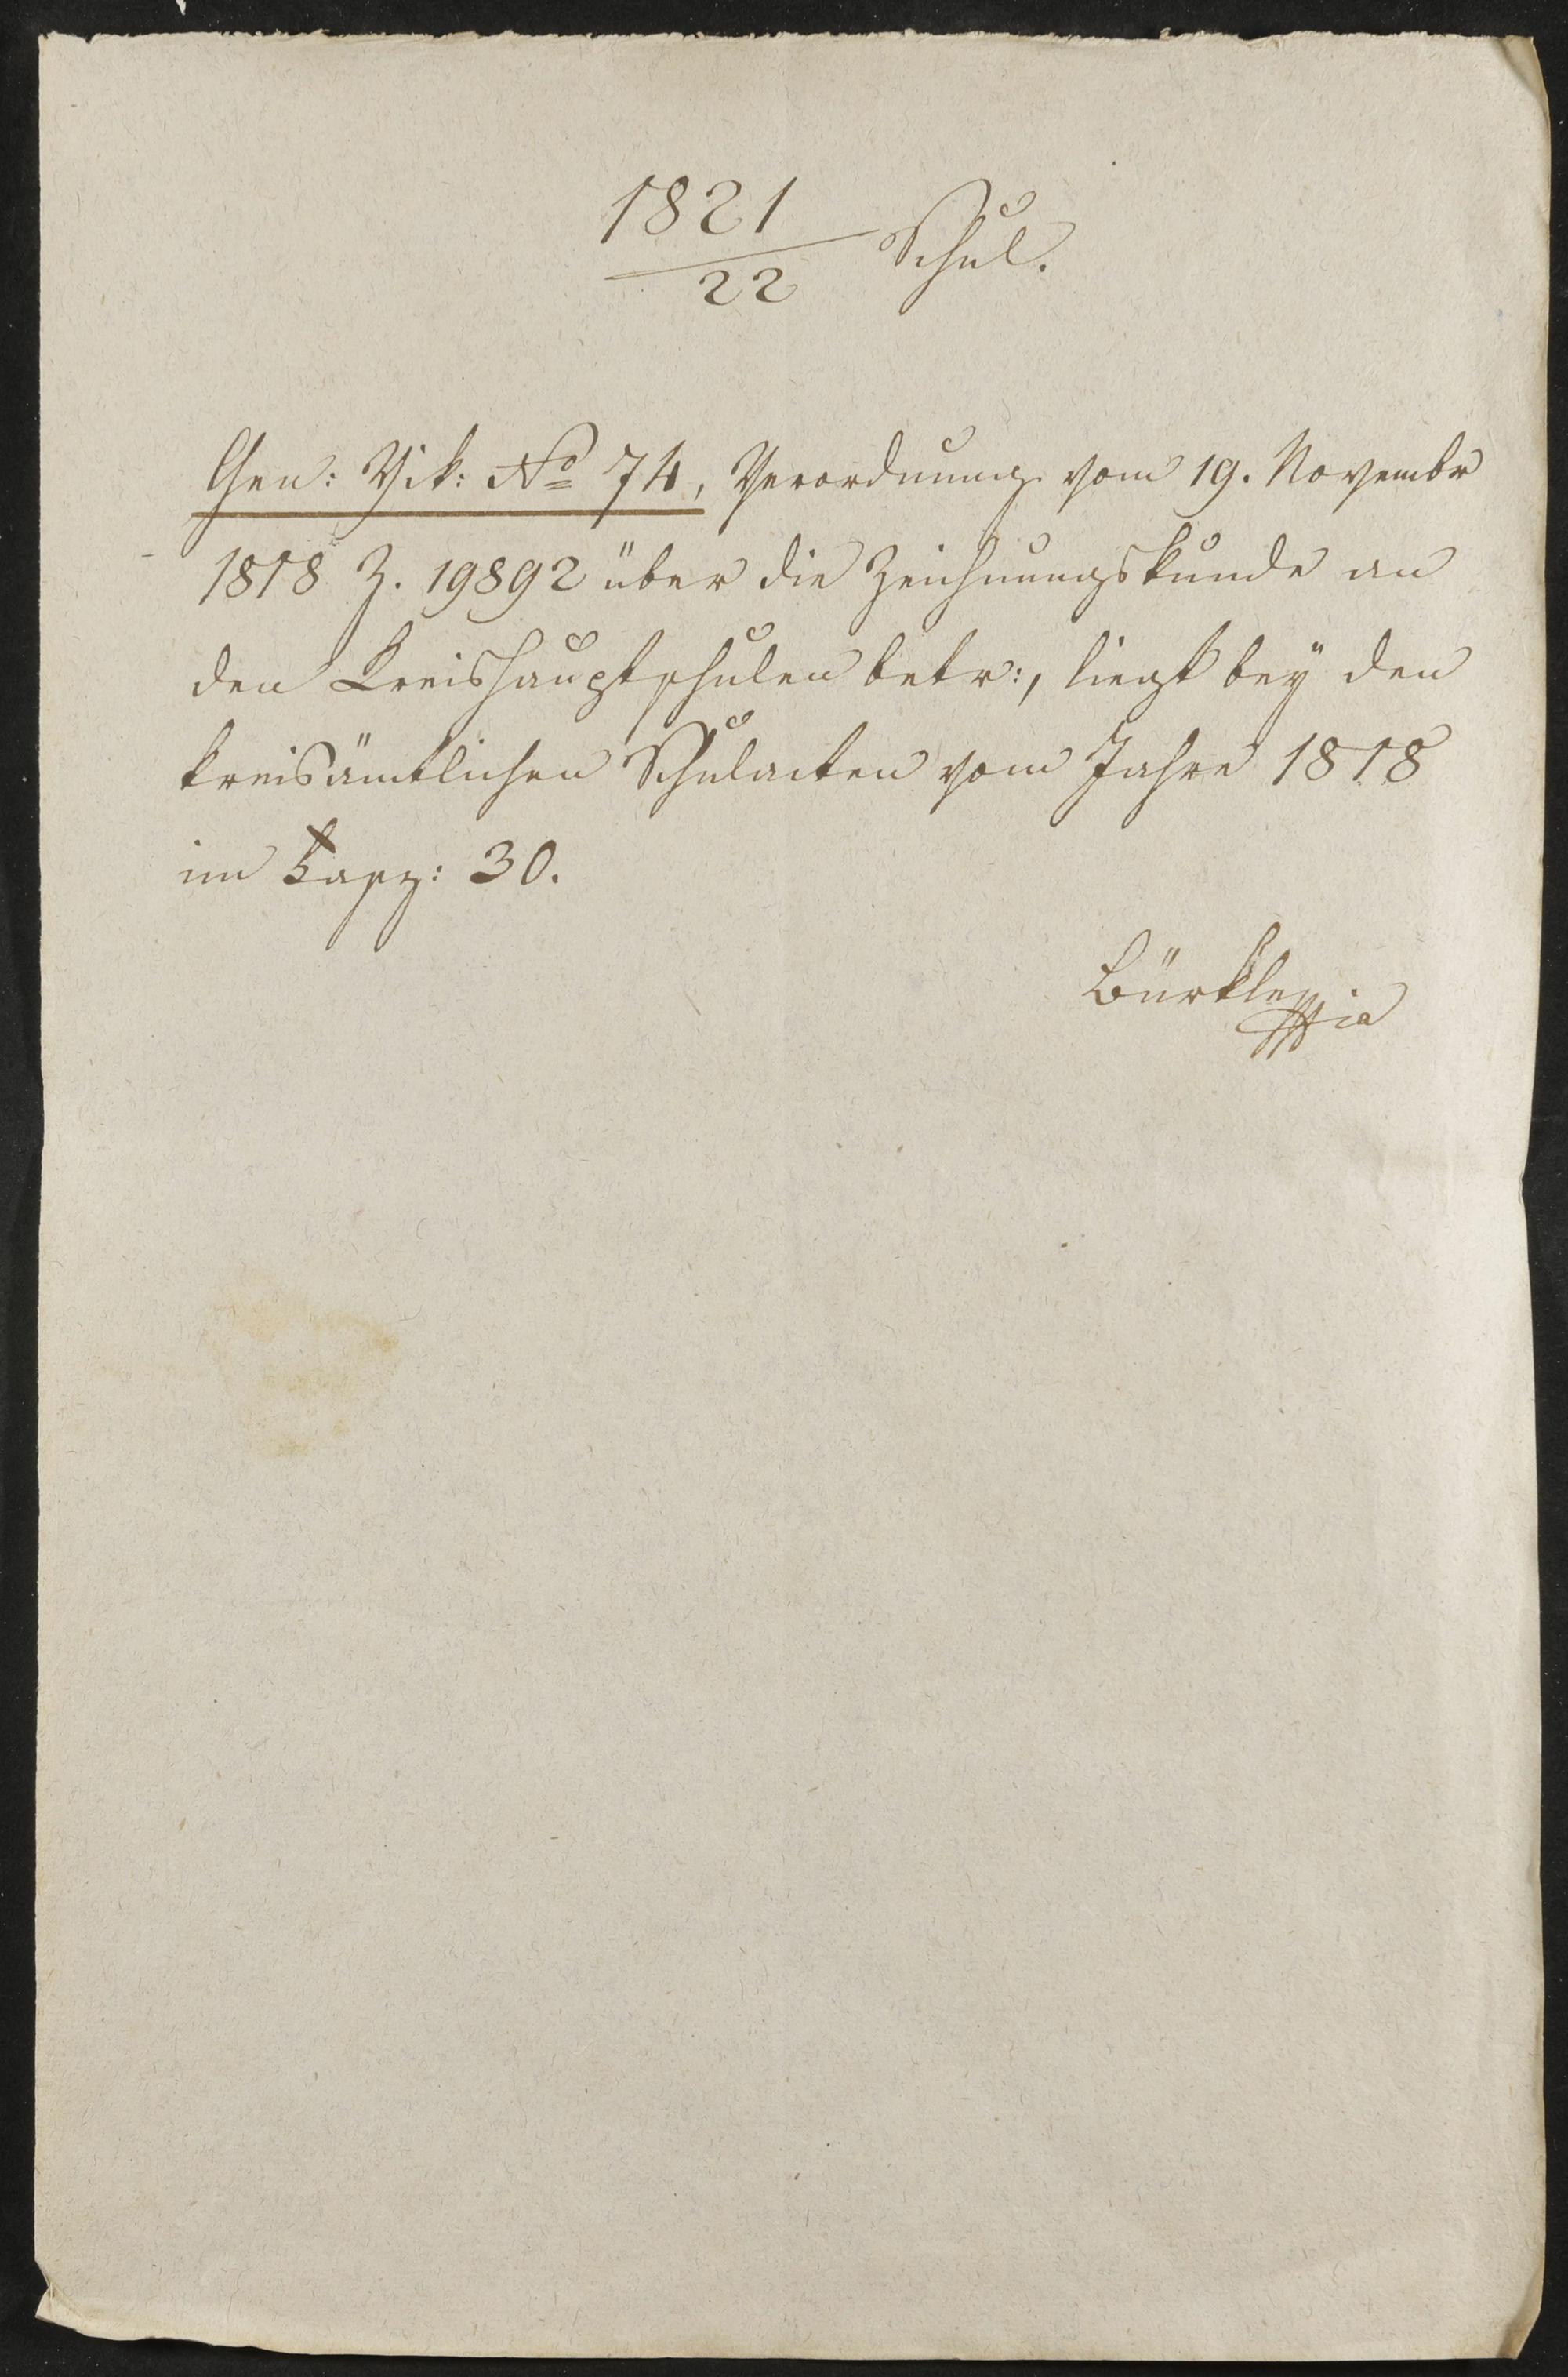 1821
22 Schul.
Gen: Vik: No 74, Verordnung vom 19. Novembr
1818 Z. 19892 über die Zeichnungskunde an
den Kreishauptschulen betr:, liegt bey den
kreisämtlichen Schulacten vom Jahre 1818
im Fasz: 30.
Bürkle